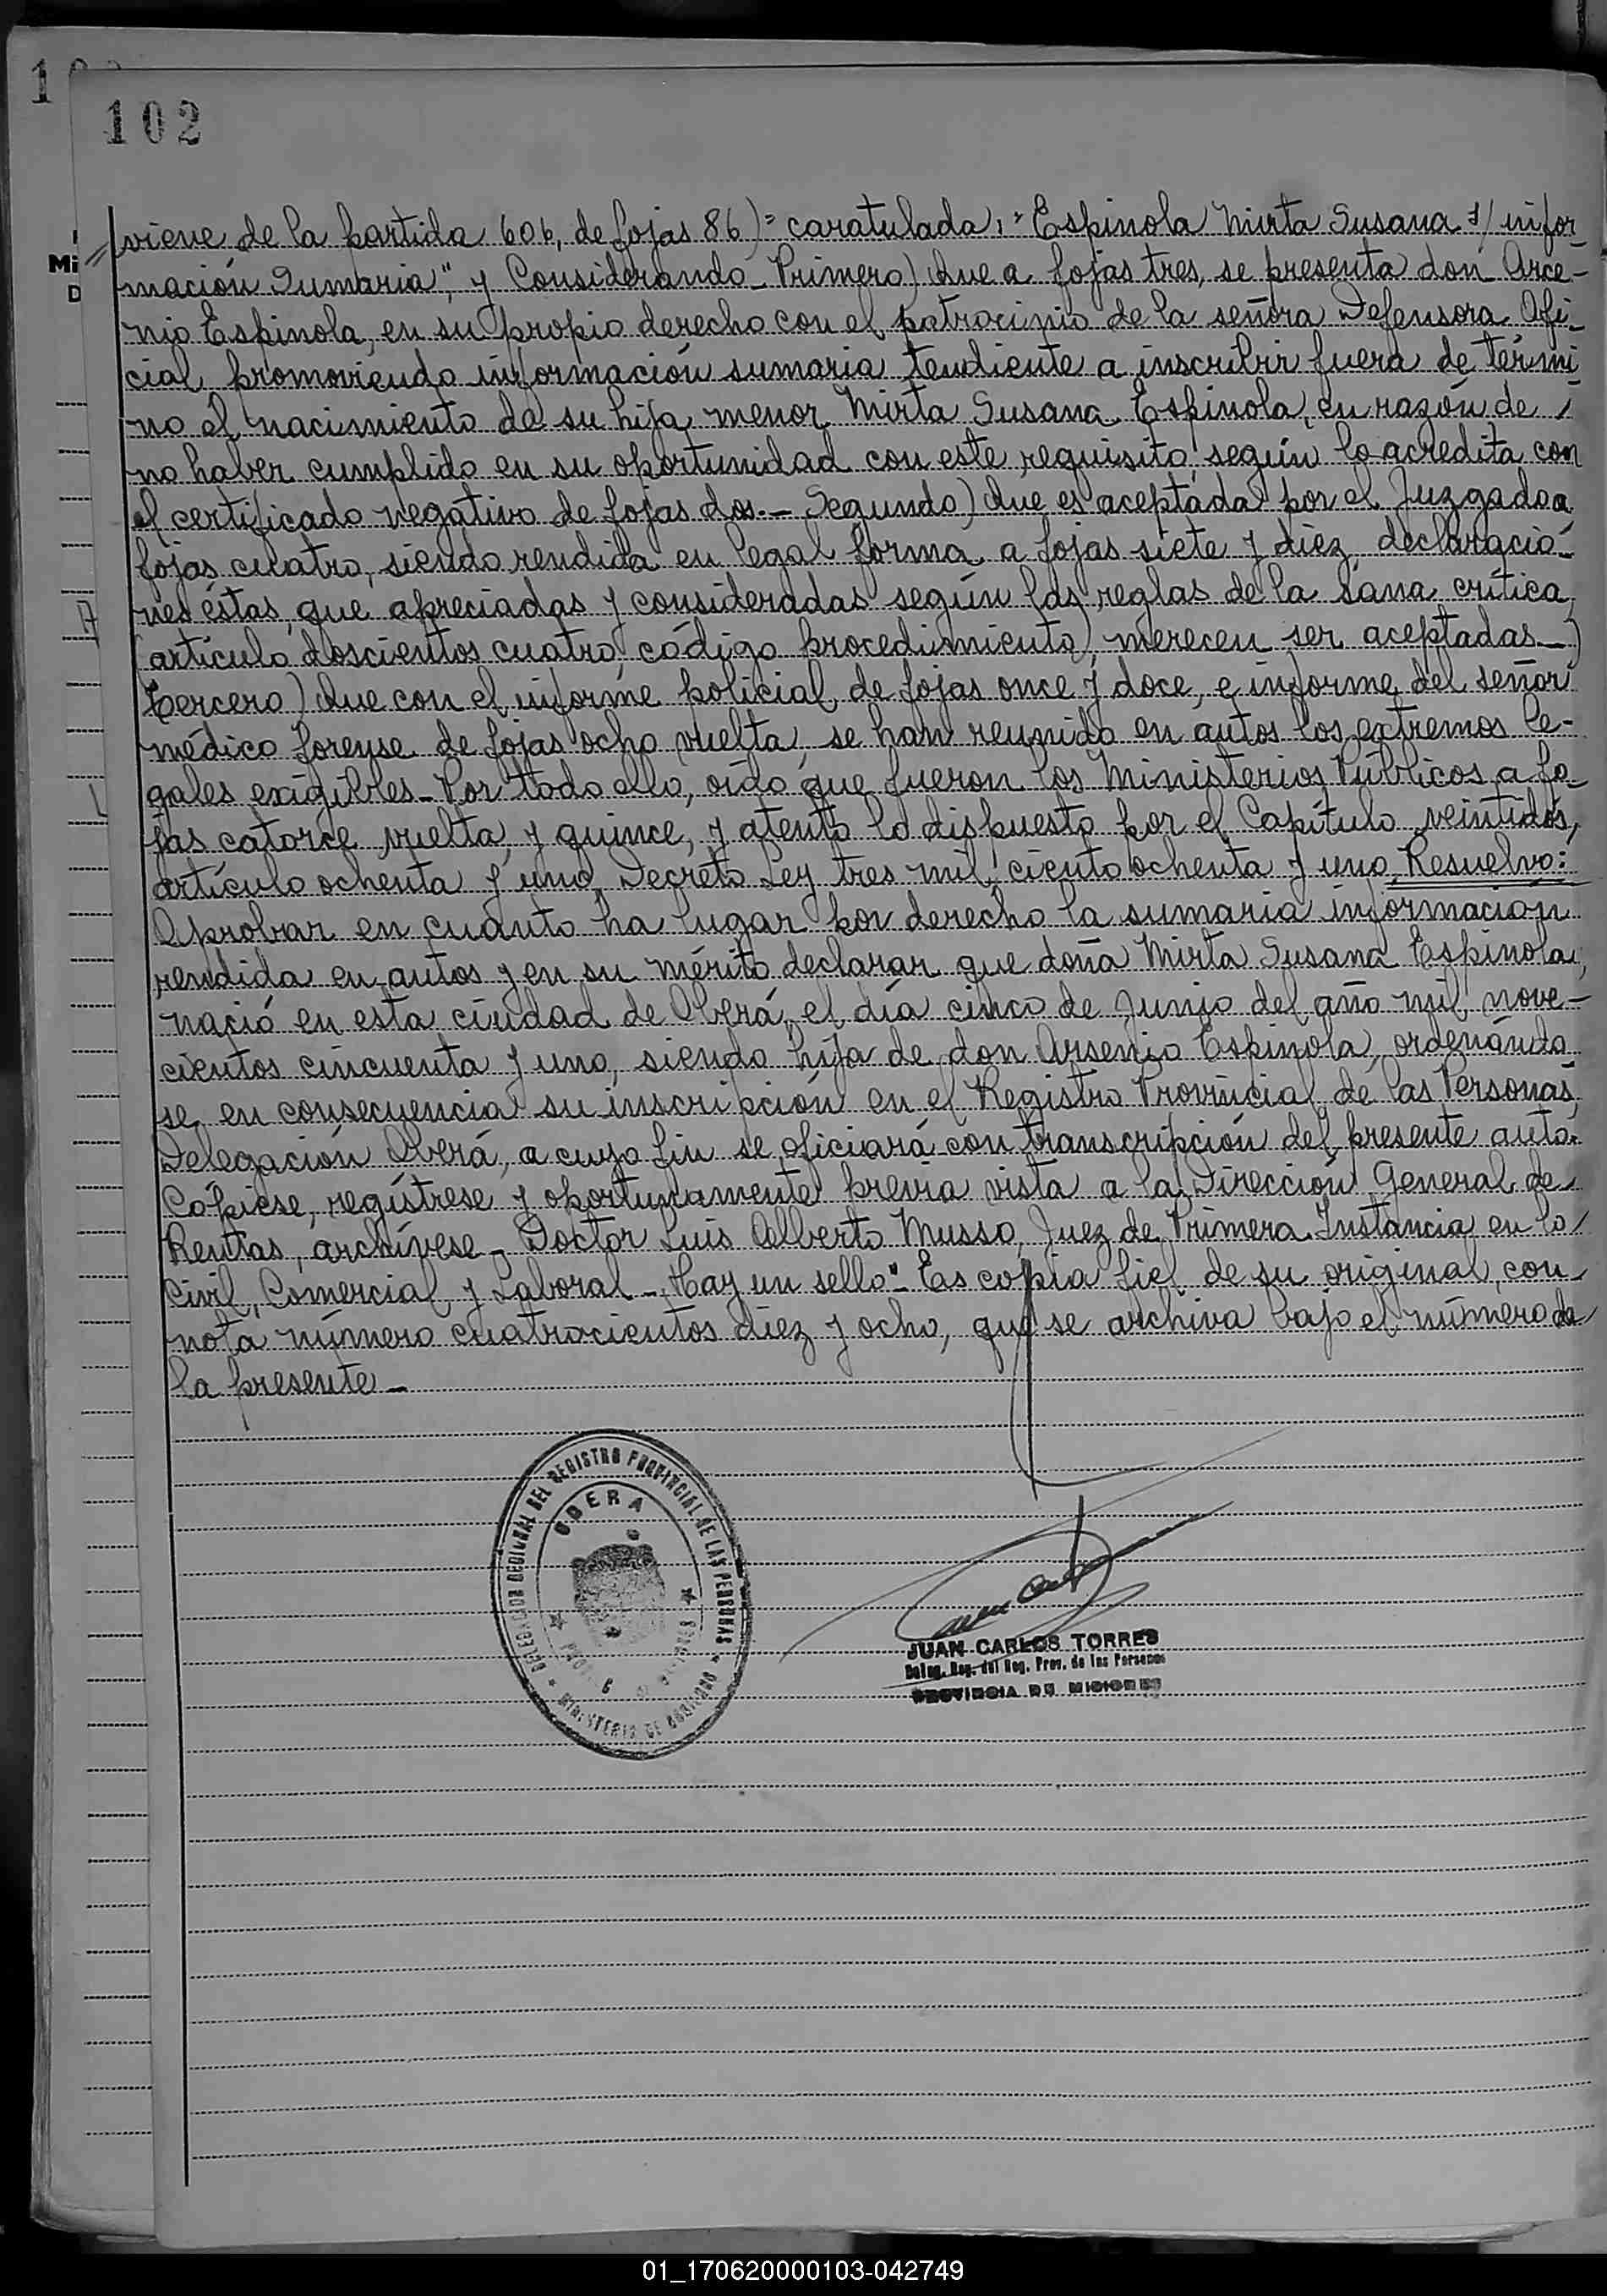 102
viene de la partida 606, de fojas 86)= caratulada: "Espinola Mirta Susana s/ infor-
mación Sumaria", y Considerando - Primero) Que a fojas tres, se presenta don Arce-
nio Espinola, en su propio derecho con el patrocinio de la señora Defensora Ofi-
cial, promoviendo información sumaria tendiente a inscribir fuera de térmi-
no el nacimiento de su hija menor Mirta Susana Espinola, en razón de /
no haber cumplido en su oportunidad con este requisito, según lo acredita con
el certificado negativo de fojas dos.- Segundo) Que es aceptada por el Juzgado a
fojas cuatro, siendo rendida en legal forma a fojas siete y diez declaracio-
nes éstas, que apreciadas y consideradas según las reglas de la sana crítica,
(artículo doscientos cuatro, código procedimiento), merecen ser aceptadas.-)
Tercero) Que con el informe policial de fojas once y doce, e informe del señor
médico forense de fojas ocho vuelta, se han reunido en autos los extremos le-
gales exigibles - Por todo ello, oído que fueron los Ministerios Públicos a fo-
jas catorce vuelta, y quince, y atento lo dispuesto por el Capítulo veintidós,
artículo ochenta y uno, Decreto Ley tres mil ciento ochenta y uno, Resuelvo:
Aprobar en cuanto ha lugar por derecho la sumaria información
rendida en autos y en su mérito declarar que doña Mirta Susana Espinola,
nació en esta ciudad de Oberá, el día cinco de Junio del año mil nove-
cientos cincuenta y uno, siendo hija de don Arsenio Espinola, ordenando
se, en consecuencia su inscripción en el Registro Provincial de las Personas,
Delegación Oberá, a cuyo fin se oficiará con transcripción del presente auto.
Cópiese, regístrese y oportunamente previa vista a la Dirección General de
Rentas, archívese - Doctor Luis Alberto Musso, Juez de Primera Instancia en lo
Civil, Comercial y Laboral - Hay un sello"- Es copia fiel de su original, con
nota número cuatrocientos diez y ocho, que se archiva bajo el número de
la presente -
DELEGACION REGIONAL DEL REGISTRO PROVINCIAL DE LAS PERSONAS
OBERA
MINISTERIO DE GOBIERNO
JUAN CARLOS TORRES
Deleg. Reg. del Reg. Prov. de las Personas
PROVINCIA DE MISIONES
01_170620000103-042749